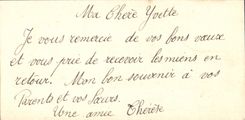 Ma Chère Yvette
Je vous remercie de vos bons vœux
et vous prie de recevoir les miens en
retour. Mon bon souvenir à vos
Parents et vos Sœurs.
Une amie Thérèse